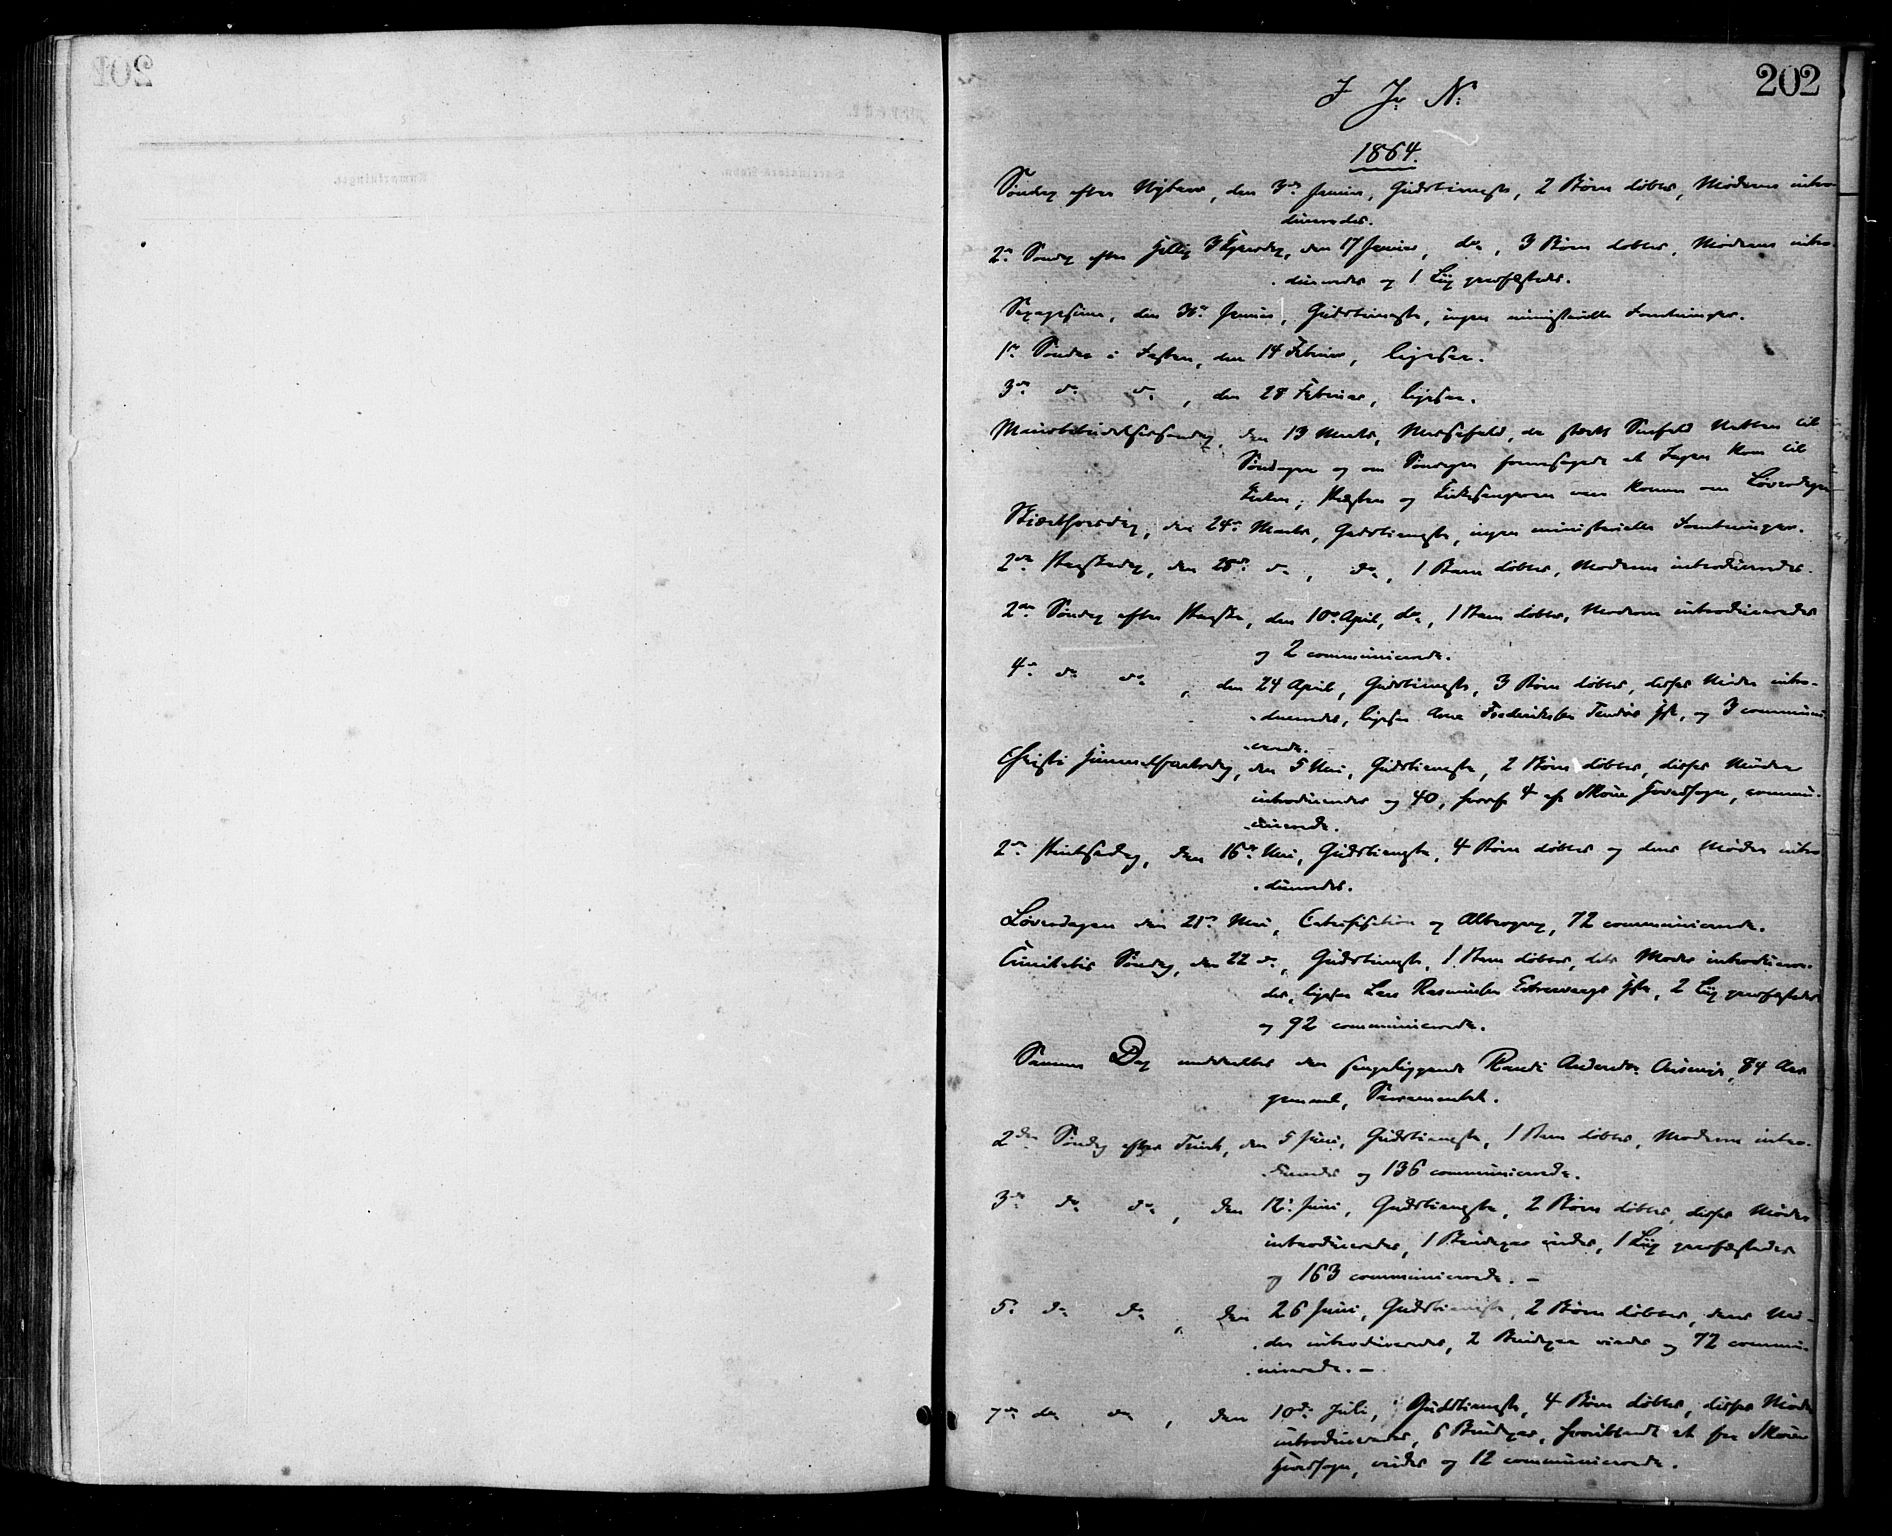 202
I J. N.
1864.
Søndag efter Nytaar, den 3die Januar, Gudstieneste, 2 Børn døbtes, Mødrene intro-
duceredes.
2den Søndag efter Hellig 3 Kongersdag, den 17 Januar, do, 3 Børn døbtes, Mødrene intro-
duceredes og 1 Liig jordfæstedes.
Sexagesima, den Januar, Gudstieneste, ingen ministerielle Forretninger.
1ste Søndag i Fasten, den 14 Februar, ligesaa.
3die do do, den 28 Februar, ligesaa.
Mariæ Bebudelsessøndag, den 13 Marts, Messefald, da stærkt Snefald Natten til
Søndagen og om Søndagen at Ingen kom til
Kirken; Præsten og Kirkesangeren var kommen om Løverdagen
Skiærthorsdag, den 24de Marts, Gudstieneste, ingen ministerielle Forretninger.
2den Paaskedag, den 28de do, do, 1 Barn døbtes, Moderen introduceredes.
2den Søndag efter Paaske, den 10de April, do, 1 Barn døbtes, Moderen introduceredes
og 2 communicerede.
4de do do, den 24 April, Gudstieneste, 3 Børn døbtes, disses Mødre intro-
duceredes, ligesaa Arne Frederiksen og 3 communi
cerede.
Christi Himmelfartsdag, den 5 Mai, Gudstieneste, 2 Børn døbtes, disses Mødre
introduceredes og 40, hvoraf 4 af Moue Hovedsogn, commu-
nicerede.
2den Pintsedag, den 16de Mai, Gudstieneste, 4 Børn døbtes og deres Mødre intro
duceredes.
Løverdagen den 21de Mai, Catechisation og Altergang, 72 communicerede.
Trinitatis Søndag, den 22 do, Gudstieneste, 1 Barn døbtes, dets Moder introducere-
des, ligesaa Lars Rasmussen 2 Liig jordfæstedes
og 92 communicerede.
Samme Dag meddeeltes den sengeliggende Randi Andersdr. 84 Aar
gammel, Sacramentet.
2den Søndag efter Trinit, den 5 Juni, Gudstieneste, 1 Barn døbtes, Moderen intro-
duceredes og 136 communicerede.
3die do do, den 12te Juni, Gudstieneste, 2 Børn døbtes, disses Mødre
introduceredes, 1 Brudepar viedes, 1 Liig jordfæstedes
og 163 communicerede. –
5te do do, den 26 Juni, Gudstieneste, 2 Børn døbtes, deres Mø-
dre introduceredes, 2 Brudepar viedes og 72 commu-
nicerede. –
7de do do, den 10de Juli, Gudstieneste, 4 Børn døbtes, disses Mødre
introduceredes, 6 Brudepar, hvoriblandt et fra Moue
Hovedsogn, viedes og 12 communicerede.